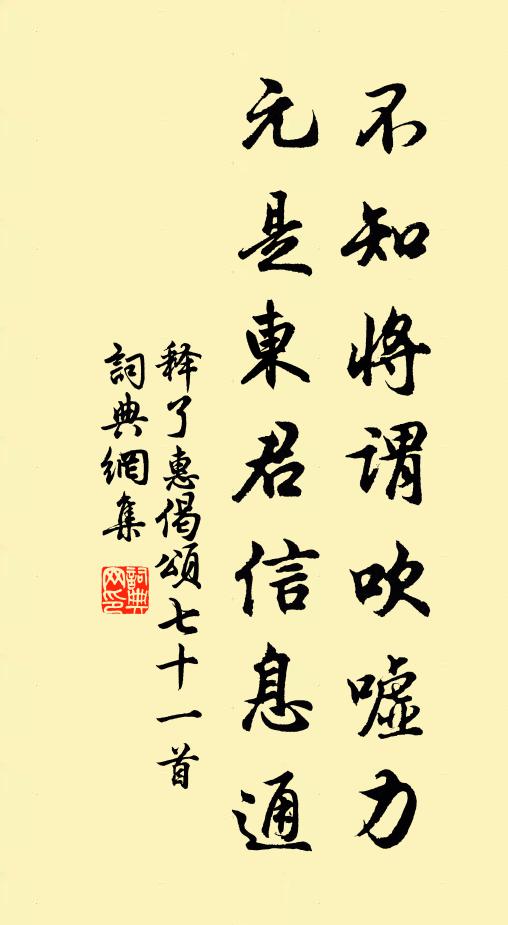 不知將謂吹噓力
元是東君信息通
释了惠偈頌七十一首
詞典網集
詞典
网印